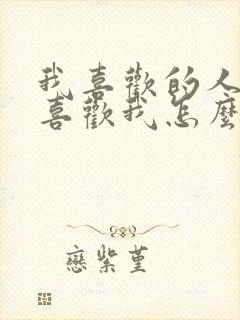 我喜歡的人
喜歡我怎麼
戀紫堇